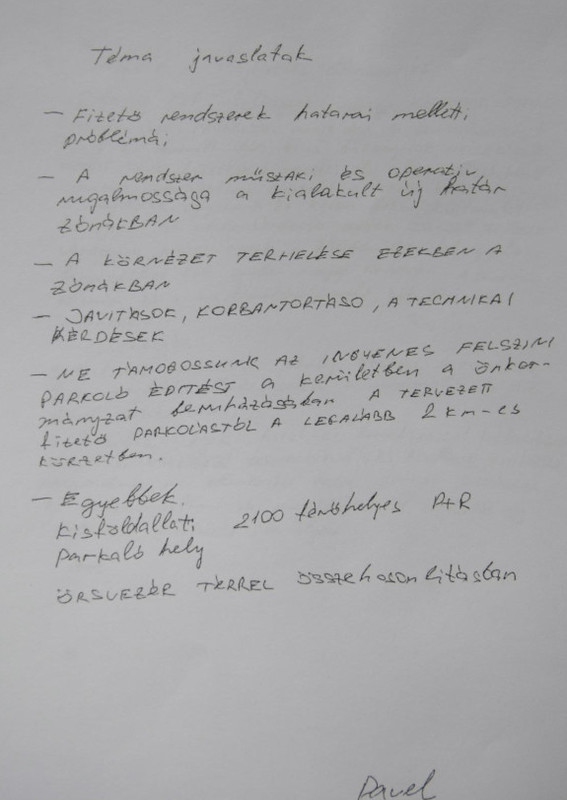 Téma javaslatak
- Fizető rendszerek hatarai melletti
problémái
- A rendszer műszaki és operatív
rugalmossága a kialakult új határ
zónákban
- A KÖRNÉZET TERHELÉSE EZEKBEN A
ZÓNÁKBAN
- JAVITÁSOK, KORBANTORTÁSO, A TECHNIKAI
KÉRDÉSEK
- NE TÁMOGOSSUNK AZ INGYENES FELSZINI
PARKOLÓ ÉDITÉST a kerületben a önkor-
mányzat beruházásában A TERVEZETT
fizető PARKOLÁSTÓL A LEGALÁBB 2 km-es
körzetben.
- Egyebbek.
Kisföldallati 2100 férőhelyes P+R
parkaló hely
ÖRSVEZÉR TÉRREL összehasonlitásban
Pavel